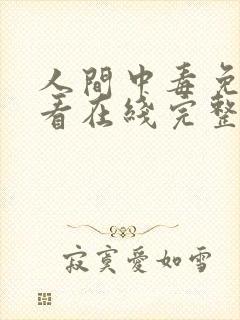 人間中毒免
看在綫完整
寂寞愛如雪